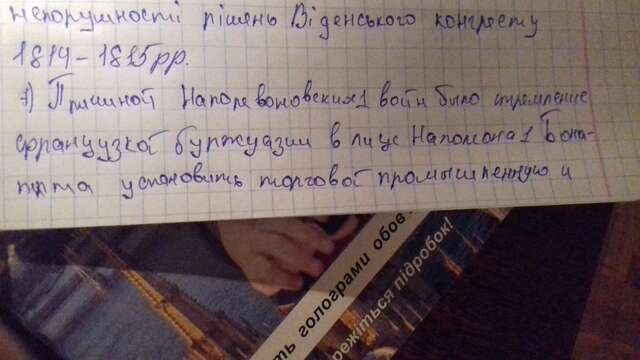 непорушності рішень Віденського конгресу
1814 - 1815 рр.
7) Причиной Наполеоновских войн было стремление
французкой буржуазии в лице Наполеона 1 Бона-
парта установить торговой промышленную и
ть голограми обов
режіться підробок!